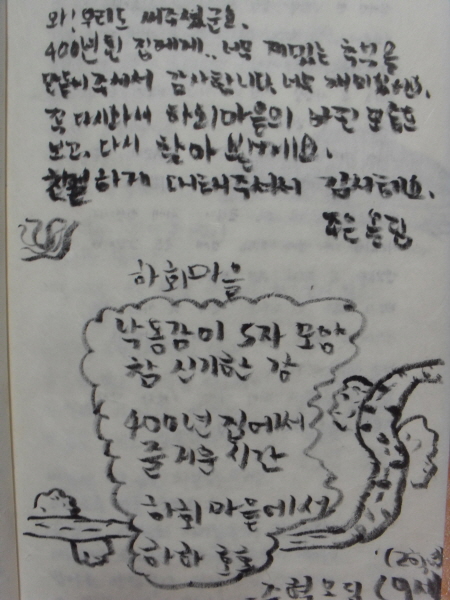 와! 우리도 써주셨군요.
400년된 집에게.. 너무 재밌는 추억을
만들어주셔서 감사합니다. 너무 재미있어요.
꼭 다시와서 하회마을의 바뀐 모습을
보고, 다시 찾아 볼게요.
친절하게 대해주셔서 감사해요.
조은
하회마을
낙동강이 S자 모양
참 신기한 강
400년 집에서
즐거운 시간
하회마을에서
하하 호호
(9세